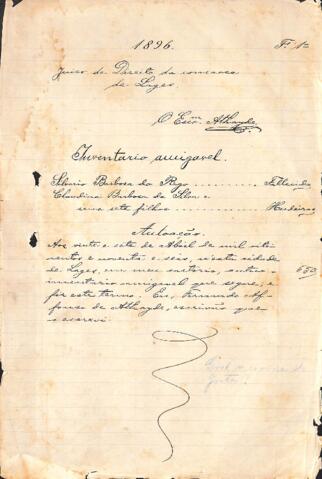 1896.
Fl. 1
Juizo de Direito da comarca
de Lages.
O Escr.m Athayde
Inventario amigavel.
Silverio Barbosa do Rego .......... Fallecido
Claudina Barbosa da Silva e
seus sete filhos .......... Herdeiros
Autoação.
Aos vinte e sete de Abril de mil oito
centos, e noventa e seis, n'esta cidade
de Lages, em meu cartorio, autuo o
inventario amigavel que segue, e
fiz este termo. Eu, Fernando Af-
fonso de Athayde, escrivão que
o escrevi.
650